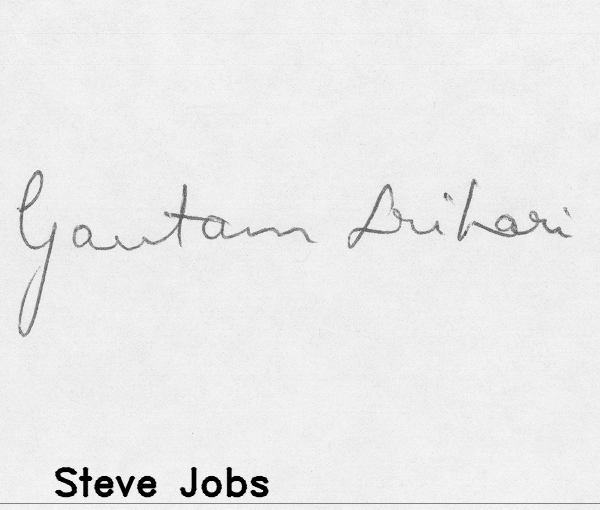 Gautam Srihari
Steve Jobs